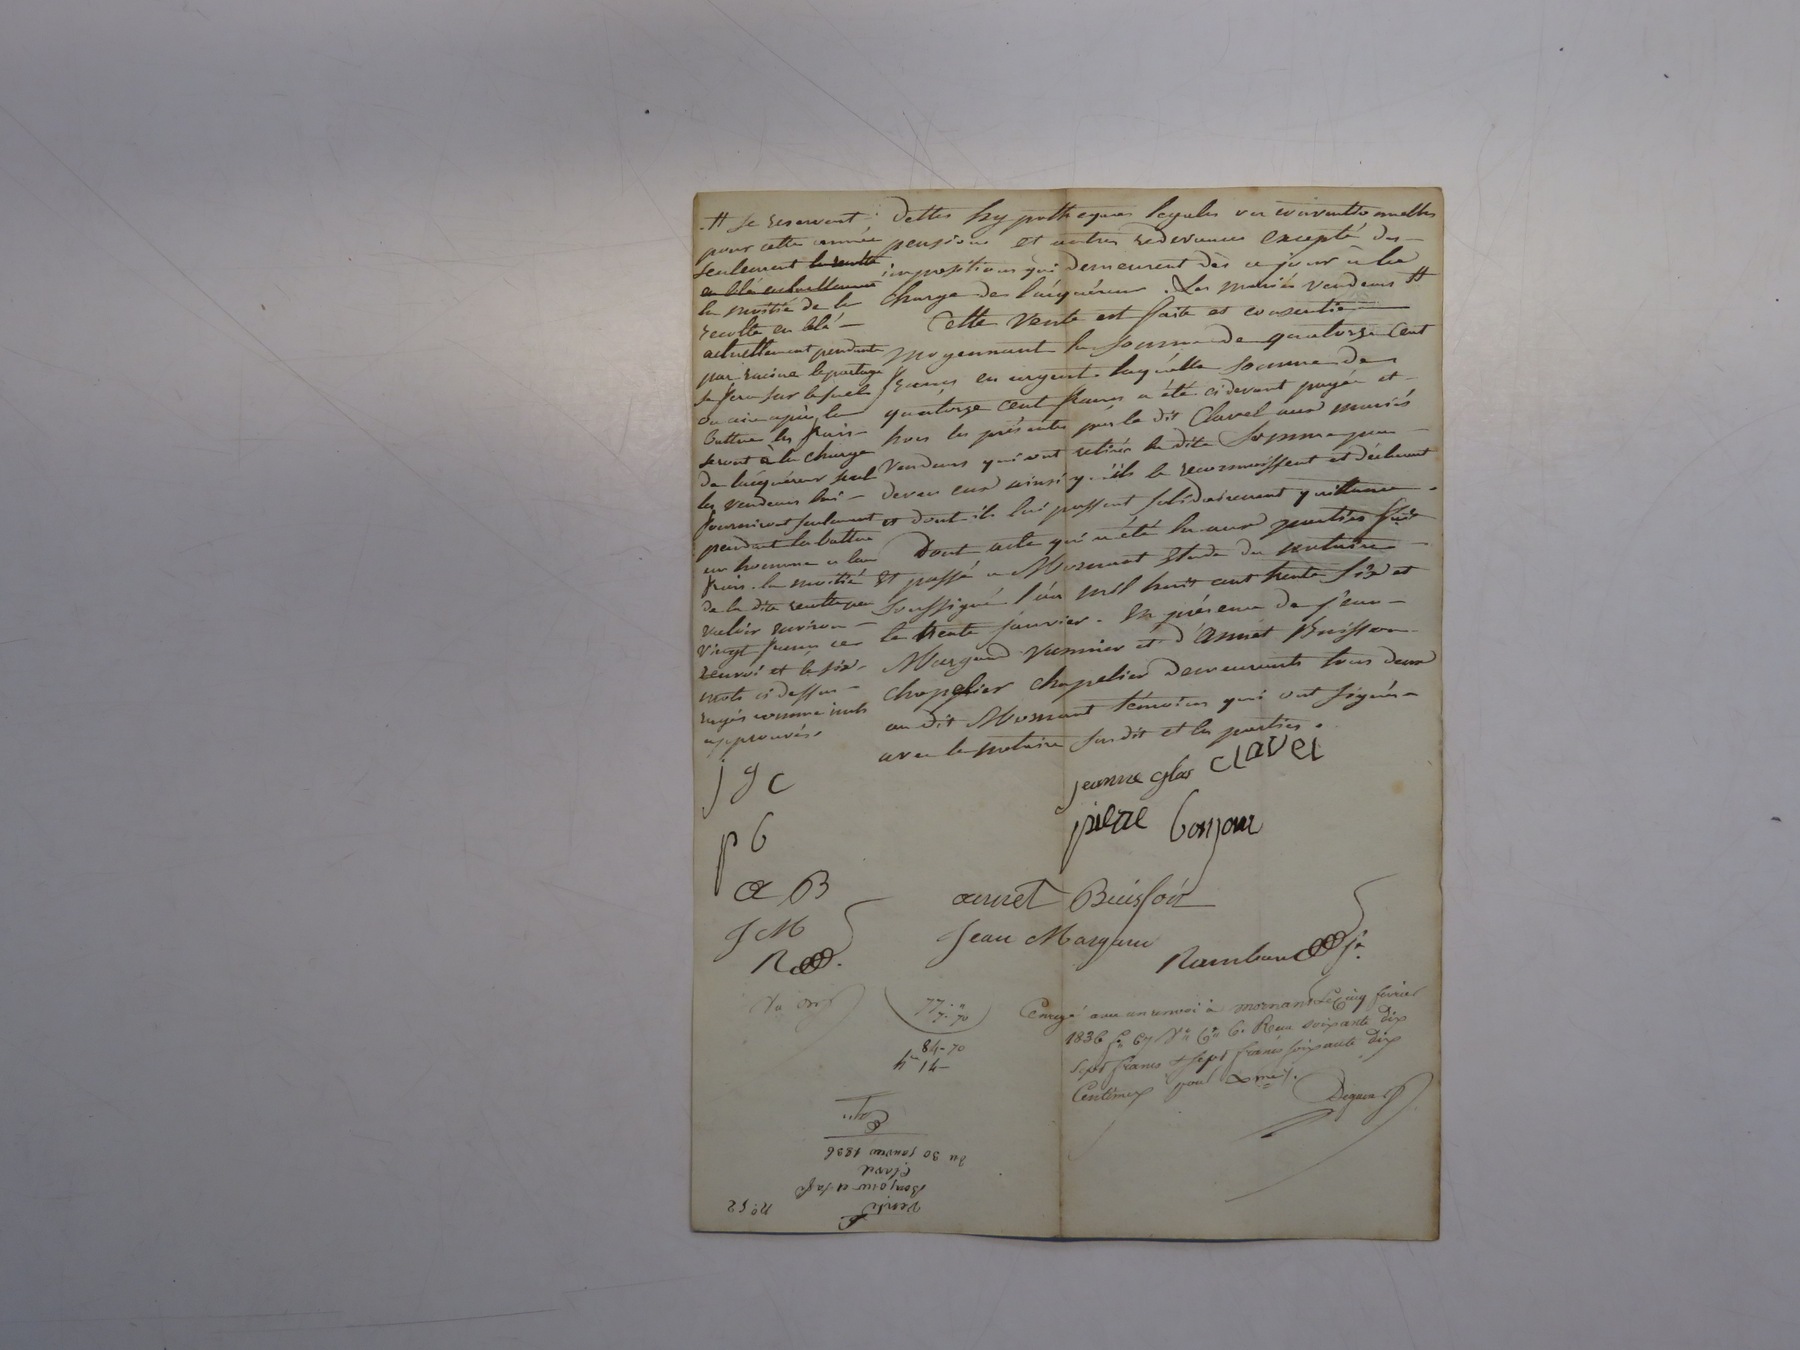 dettes hypothèques legales ou conventionnelles
pensions et autres redevances excepté des
impositions qui demeurent dès ce jour à la
charge de l'acquéreur. Les mariés vendeurs #
Cette vente est faite et consentie
moyennant la somme de quatorze cent
francs en argent laquelle somme de
quatorze cent francs a été cidevant payée et
hors les présentes par le dit Clavel aux mariés
vendeurs qui ont retiré la dite somme par
devers eux ainsi qu'ils le reconnaissent et déclarent
et dont ils lui passent solidairement quittance.
Dont acte qui a été lu aux parties fait
et passé à Mornant Etude du notaire
soussigné l'an mil huit cent trente six et
le trente janvier. En présence de Jean
Margand vannier et d'annet Buisson
chapelier chapelier demeurants tous deux
au dit Mornant témoins qui ont signé
avec le notaire susdit et les parties.
# se reservent
pour cette année
seulement la recolte
en blé actuellement
la moitié de la
recolte en blé
actuellement pendante
par racine le partage
se fera sur le suel
ou aire après la
battue les frais
seront à la charge
de l'acquéreur seul
les vendeurs lui
fourniront seulement
pendant la battue
un homme a leur
frais. la moitié
de la dite recolte peu
valoir environ
vingt francs ce
renvoi et les six
mots ci dessus
rayés comme nuls
approuvés.
j g c
p b
a B
J M
R
jeanne glas clavel
pierre bonjour
annet Buisson
Jean Margand
Rambaud
77 "
7. 70
84-70
14-
Enregé avec un renvoi à mornant le Cinq février
1836 fo 67 Vo Ce 6. Reçu soixante dix
sept francs & sept francs soixante dix
Centimes pour
No 52
Vente
Bonjour et
Clavel
du 30 janvier 1836